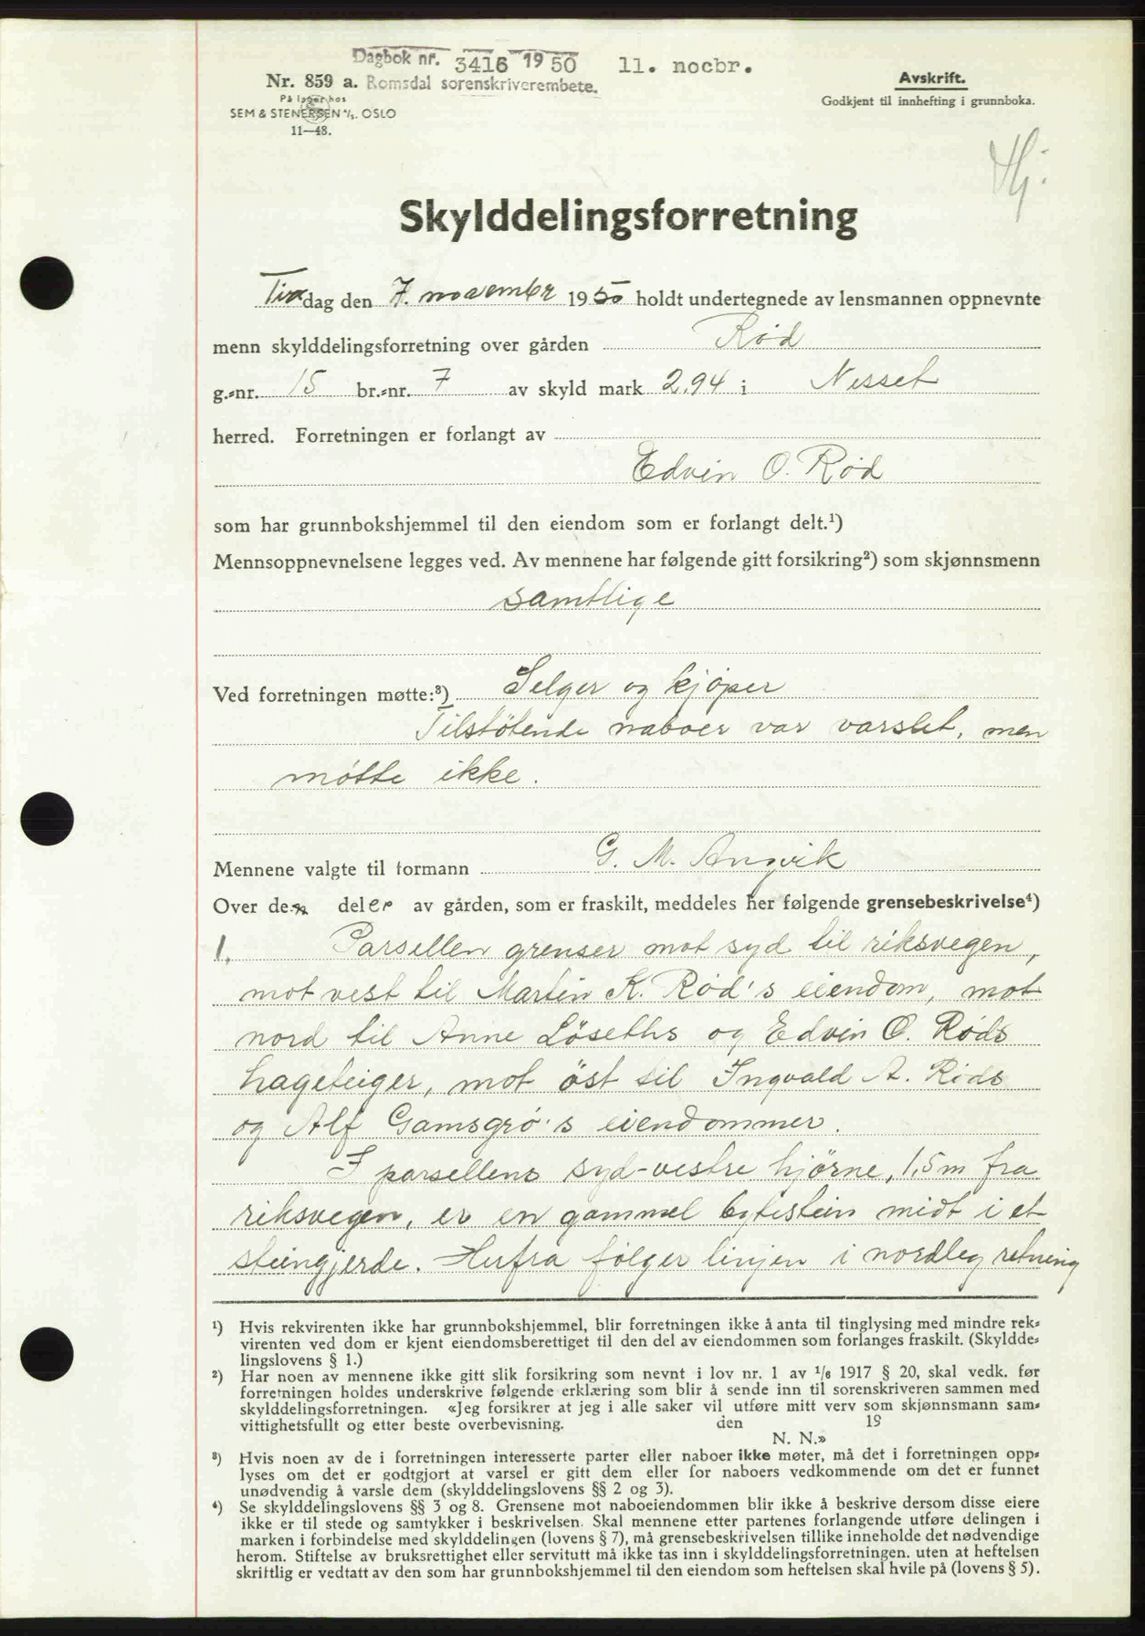 Dagbok nr. 3416 1950 11. nocbr.
Nr. 859 a. Romsdal sorenskriverembete.
På lager hos
SEM & STENERSEN A/S. OSLO
11—48.
Avskrift.
Godkjent til innhefting i grunnboka.
Skylddelingsforretning
Tirsdag den 7. november 1950 holdt undertegnede av lensmannen oppnevnte
menn skylddelingsforretning over gården Rød
g.-nr. 15 br.-nr. 7 av skyld mark 2,94 i Nesset
herred. Forretningen er forlangt av
Edvin O. Rød
som har grunnbokshjemmel til den eiendom som er forlangt delt.¹)
Mennsoppnevnelsene legges ved. Av mennene har følgende gitt forsikring²) som skjønnsmenn
samtlige
Ved forretningen møtte:³) Selger og kjøper
Tilstøtende naboer var varslet, men
møtte ikke.
Mennene valgte til formann G. M. Angvik
Over de deler av gården, som er fraskilt, meddeles her følgende grensebeskrivelse⁴)
1. Parsellen grenser mot syd til riksvegen,
mot vest til Martin K. Rød's eiendom, mot
nord til Anne Løseths og Edvin O. Røds
hageteiger, mot øst til Ingvald A. Røds
og Alf Gamsgrø's eiendommer.
I parsellens syd-vestre hjørne, 1,5 m fra
riksvegen, er en gammel bytestein midt i et
steingjerde. Herfra følger linjen i nordleg retning
¹) Hvis rekvirenten ikke har grunnbokshjemmel, blir forretningen ikke å anta til tinglysing med mindre rek-
virenten ved dom er kjent eiendomsberettiget til den del av eiendommen som forlanges fraskilt. (Skyldde-
lingslovens § 1.)
²) Har noen av mennene ikke gitt slik forsikring som nevnt i lov nr. 1 av 1/6 1917 § 20, skal vedk. før
forretningen holdes underskrive følgende erklæring som blir å sende inn til sorenskriveren sammen med
skylddelingsforretningen. «Jeg forsikrer at jeg i alle saker vil utføre mitt verv som skjønnsmann sam-
vittighetsfullt og etter beste overbevisning. den 19
N. N.»
³) Hvis noen av de i forretningen interesserte parter eller naboer ikke møter, må det i forretningen opp-
lyses om det er godtgjort at varsel er gitt dem eller for naboers vedkommende om det er funnet
unødvendig å varsle dem (skylddelingslovens §§ 2 og 3).
⁴) Se skylddelingslovens §§ 3 og 8. Grensene mot naboeiendommen blir ikke å beskrive dersom disse eiere
ikke er til stede og samtykker i beskrivelsen. Skal mennene etter partenes forlangende utføre delingen i
marken i forbindelse med skylddelingen (lovens § 7), må grensebeskrivelsen tillike inneholde det nødvendige
herom. Stiftelse av bruksrettighet eller servitutt må ikke tas inn i skylddelingsforretningen. uten at heftelsen
skriftlig er vedtatt av den som har grunnbokshjemmel til den eiendom som heftelsen skal hvile på (lovens § 5).